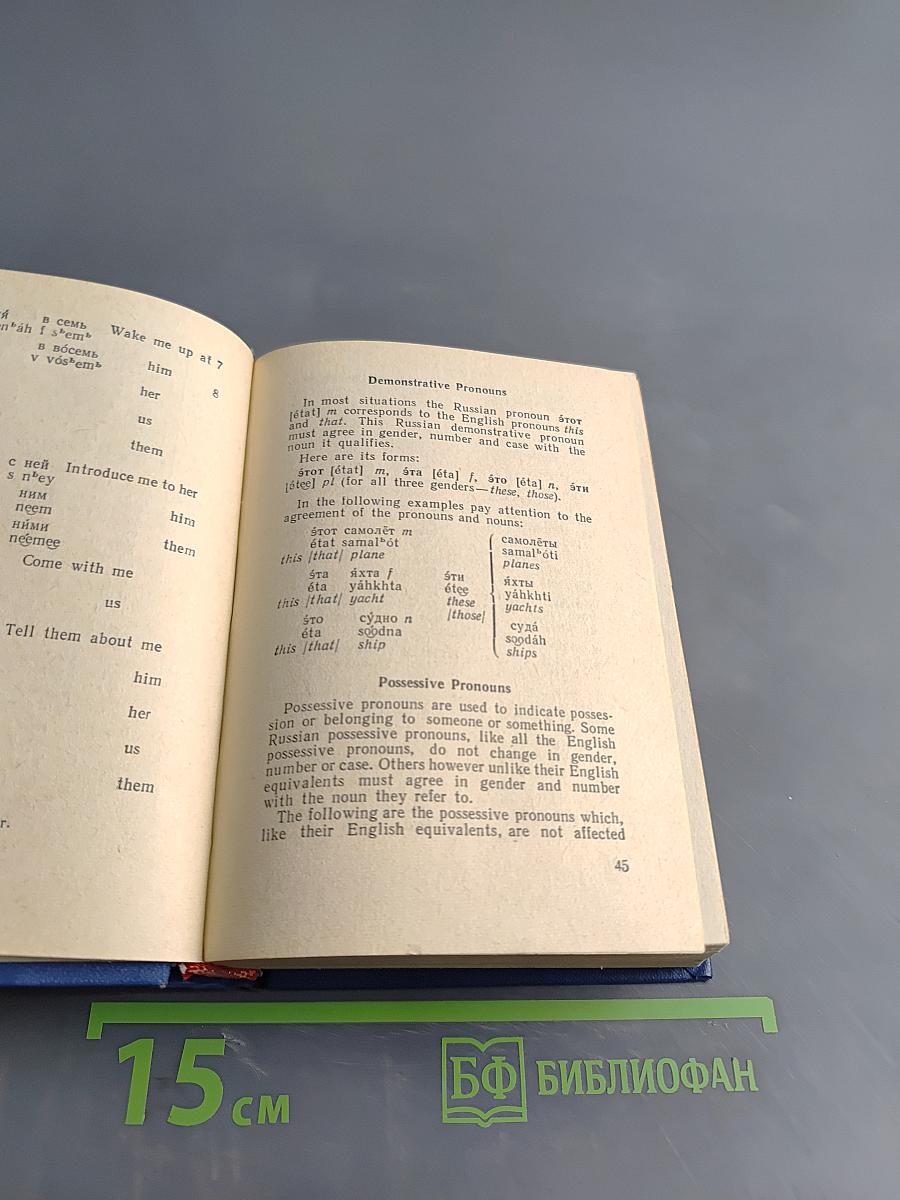 в семь Wake me up at 7
nᵇáh f sᵇemᵇ
в во́семь him 8
v vósᵇemᵇ
her
us
them
с ней Introduce me to her
s nᵇey
ним him
neem
ни́ми them
néemee
Come with me
us
Tell them about me
him
her
us
them
r.
Demonstrative Pronouns
In most situations the Russian pronoun э́тот
[état] m corresponds to the English pronouns this
and that. This Russian demonstrative pronoun
must agree in gender, number and case with the
noun it qualifies.
Here are its forms:
э́тот [état] m, э́та [éta] f, э́то [éta] n, э́ти
[étee] pl (for all three genders—these, those).
In the following examples pay attention to the
agreement of the pronouns and nouns:
э́тот самолёт m
état samalᵇót
this |that| plane
э́та я́хта f
éta yáhkhta
this |that| yacht
э́то су́дно n
éta soodna
this |that| ship
э́ти
étee
these
|those|
самолёты
samalᵇóti
planes
я́хты
yáhkhti
yachts
суда́
soodáh
ships
Possessive Pronouns
Possessive pronouns are used to indicate posses-
sion or belonging to someone or something. Some
Russian possessive pronouns, like all the English
possessive pronouns, do not change in gender,
number or case. Others however unlike their English
equivalents must agree in gender and number
with the noun they refer to.
The following are the possessive pronouns which,
like their English equivalents, are not affected
45
15 см
БФ БИБЛИОФАН